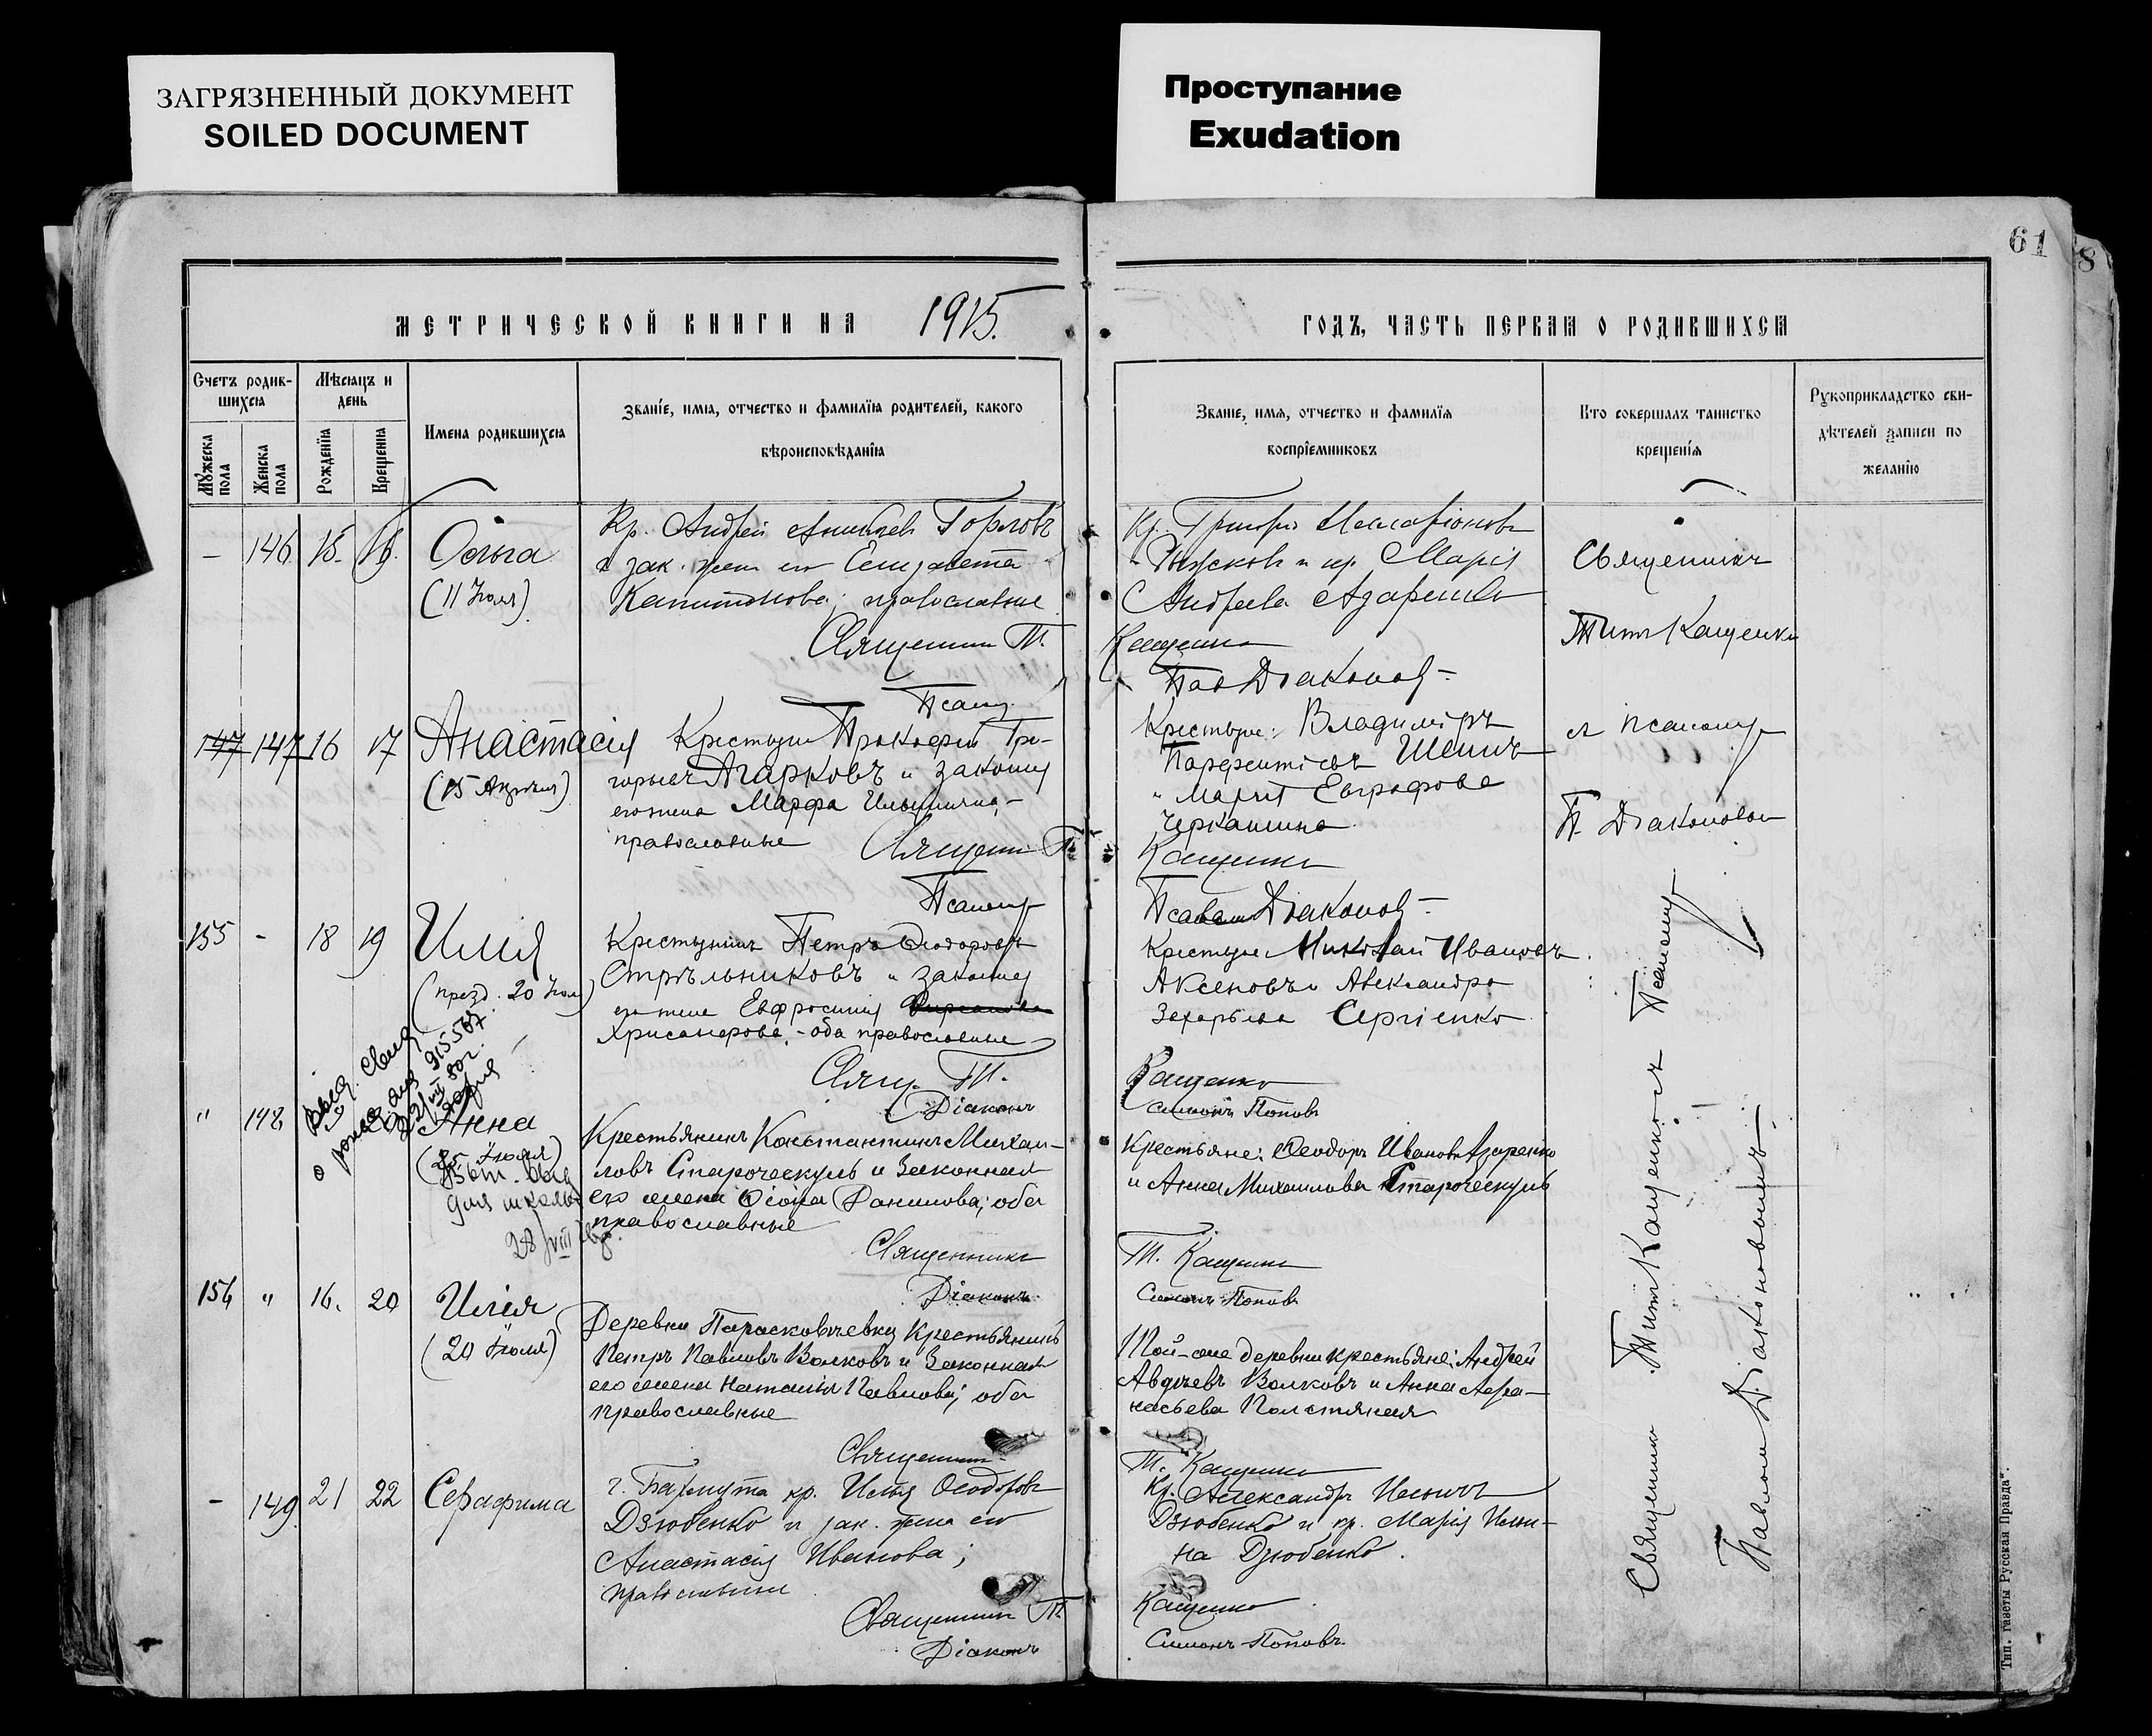 ЗАГРЯЗНЕННЫЙ ДОКУМЕНТ
SOILED DOCUMENT
Проступание
Exudation
61
8
МЕТРИЧЕСКОЙ КНИГИ НА 1915.
ГОДЪ, ЧАСТЬ ПЕРВАЯ О РОДИВШИХСЯ
Счетъ родив-
шихся
Мужеска
пола
Женска
пола
Мѣсяцъ и
день
Рожденїя
Крещенїя
Имена родившихся
Званїе, имя, отчество и фамилїя родителей, какого
вѣроисповѣданїя
Званїе, имя, отчество и фамилїя
воспрїемниковъ
Кто совершалъ таинство
крещенїя
Рукоприкладство сви-
дѣтелей записи по
желанїю
– 146 15. 16. Ольга
(11 Iюля)
Кр. Андрей Горловъ
и зак. жена его Елизавета
Капитонова; православные
Священник Т.
Псалом.
Кр. Григорiй Илларiоновъ
и кр. Марiя
Андреева Азаренко
Кащенко
Пав Дiаконов
Священникъ
Титъ Кащенко
147 147 16 17 Анастасiя
(15 Апрѣля)
Крестьяне Прокофiй Гри-
горьевъ Агарковъ и законная
его жена Марфа Ильинична,–
православные Священ. Т.
Псаломщ
Крестьяне: Владимiръ
Парфентiевъ Шеинъ
и Марiя Евграфова
Черкашина
Кащенко
Дiаконов
и псаломщ
П. Дiаконовъ
155 - 18 19 Илiя
(празд. 20 Iюля)
Крестьянинъ Петръ Ѳеодоровъ
Стрѣльниковъ и законная
его жена Евфросинiя
Хрисанфова,- оба православные
Свящ. Т.
Дiаконъ
Крестьяне Николай Ивановъ
Аксеновъ и Александра
Захарьева Сергiенко
Кащенко
Симонъ Поповъ
Выд. Свид.
о рожд. для 915587
21 VIII 30 г.
" 148
Анна
(25 Iюля)
Выт. выд
для школы
28 VIII
Крестьянинъ Константинъ Михай-
ловъ Старочеркулъ и Законная
его жена Данилова; оба
православные
Священникъ
Дiаконъ
Крестьяне: Ѳеодоръ Ивановъ Азаренко
и Анна Михаилова
Т. Кащенко
Симонъ Поповъ
156 " 16. 20 Илiя
(20 Iюля)
Деревни Парасковiевки Крестьянинъ
Петръ Павловъ Волковъ и Законная
его жена Наталiя Павлова; оба
православные
Священник
Той-же деревни крестьяне: Андрей
Авдѣевъ Волковъ и Анна Афа-
насьева Полстяная
Т. Кащенко
– 149 21 22 Серафима
г. Бахмута кр. Илья Ѳеодоровъ
Дзюбенко и зак. жена его
Анастасiя Иванова;
православные
Священник Т.
Дiаконъ
Кр. Александръ Ильичъ
Дзюбенко и кр. Марiя Ильи-
на Дзюбенко.
Кащенко
Симонъ Поповъ
Священникъ Титъ Кащенко съ Псаломщ
Павломъ Дiаконовымъ
Тип. газеты Русская Правда".